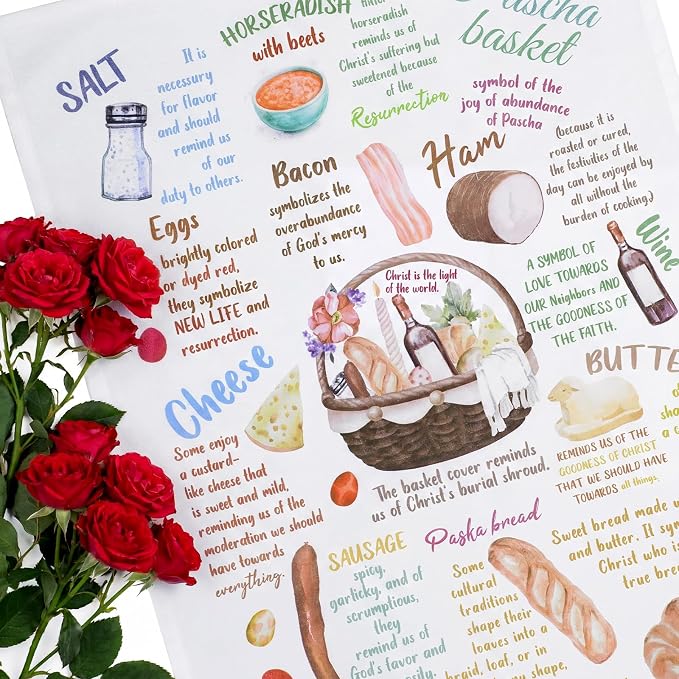 SALT
It is
necessary
for flavor
and should
remind us
of our
duty to others.
HORSERADISH
with beets
horseradish
reminds us of
Christ's suffering but
sweetened because
of the
Resurrection
basket
symbol of the
joy of abundance
of Pascha
Bacon
symbolizes the
overabundance
of God's mercy
to us.
Ham
(because it is
roasted or cured,
the festivities of the
day can be enjoyed by
all without the
burden of cooking.)
Eggs
brightly colored
or dyed red,
they symbolize
NEW LIFE and
resurrection.
Christ is the light
of the world.
Wine
A SYMBOL OF
LOVE TOWARDS
OUR Neighbors AND
THE GOODNESS OF
THE FAITH.
Cheese
Some enjoy
a custard-
like cheese that
is sweet and mild,
reminding us of the
moderation we should
have towards
everything.
The basket cover reminds
us of Christ's burial shroud.
BUTTE
REMINDS US OF THE
GOODNESS OF CHRIST
THAT WE SHOULD HAVE
TOWARDS all things.
SAUSAGE
spicy,
garlicky, and of
scrumptious,
they
remind us of
God's favor and
Paska bread
Some
cultural
traditions
shape their
loaves into a
braid, loaf, or in
shape,
Sweet bread made
and butter. It sym
Christ who is
true brea